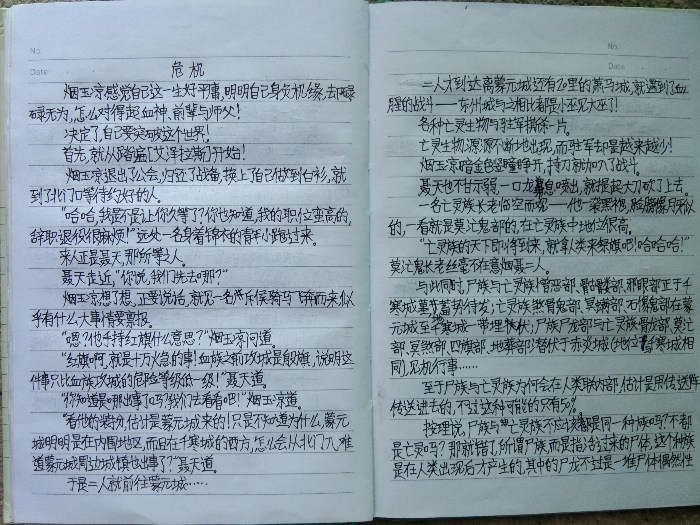 No.
Date
危机
烟玉凉感觉自己这一生好平庸,明明自己身负机缘,去口碌
碌无为,怎么对得起血神、前辈与师父!
决定了,自己要突破这个世界!
首先,就从踏遍[艾泽拉斯]开始!
烟玉凉退出了公会,归还了战备,换上了自己做到白衫,就
到了北门口等待约好的人。
“哈哈,我是不是让你久等了?你也知道,我的职位蛮高的,
辞职退役很麻烦!”远处一名身着锦衣的青年小跑过来。
来人正是聂天,那所等之人。
聂天走近,“你说,我们先去哪?”
烟玉凉想了想,正要说话,就见一名斥侯骑马飞奔而来,似
乎有什么大事情要禀报。
“嗯?他手持红旗什么意思?”烟玉凉问道。
“红旗啊,就是十万火急的事!血族之前攻城是般旗,说明这
件事只比血族攻城的危险等级低一级!”聂天道。
“你知道是哪出事了吗?我们去看看吧!”烟玉凉道。
“看他的装扮,估计是蒙元城来的!只是不知道为什么,蒙元
城明明是在内围地区,而且在千寒城的西方,怎么会从北门入,难
道蒙元城周边城镇也出事了?”聂天道。
于是二人就前往蒙元城……
No.
Date
二人才到达离蒙元城还有百里的萧马城,就遇到了血
腥的战斗——东州城与之相比都是小巫见大巫了!
各种亡灵生物与驻军搏杀一片。
亡灵生物源源不断地出现,而驻军却是越来越少!
烟玉凉暗金色竖瞳睁开,持刀就加入了战斗。
聂天也不甘示弱,一口龙息喷出,就提起大刀砍了上去。
一名亡灵族长老临空而现——他一袭黑袍,脸
的,一看就是莫沱鬼部的,在亡灵族中地位很高。
“亡灵族的天下即将到来,就拿人类来祭旗吧!哈哈哈!”
莫沱鬼长老丝毫不在意烟聂二人。
与此同时,尸族与亡灵族憎恶部、骷髅部、邪眼部正于千
寒城 蓄势待发;亡灵族煞骨鬼部、冥 部、石像鬼部在蒙
元城至千寒城一带埋伏;尸族尸龙部与亡灵族骨龙部、莫沱
部、冥煞部、四旗部、地葬部潜伏于赤炎城(地位与千寒城相
同),见机行事……
至于尸族与亡灵族为何会在人类联内部,估计是用传送阵
传送进去的,不过这种可能的只有5%。
按理说,尸族与亡灵族不应该都是同一种族吗?不都
是亡灵吗?那就错了,所谓尸族而是指活过来的尸体,这个种族
是在人类出现后才产生的,其中的尸龙不过是一堆尸体偶然性